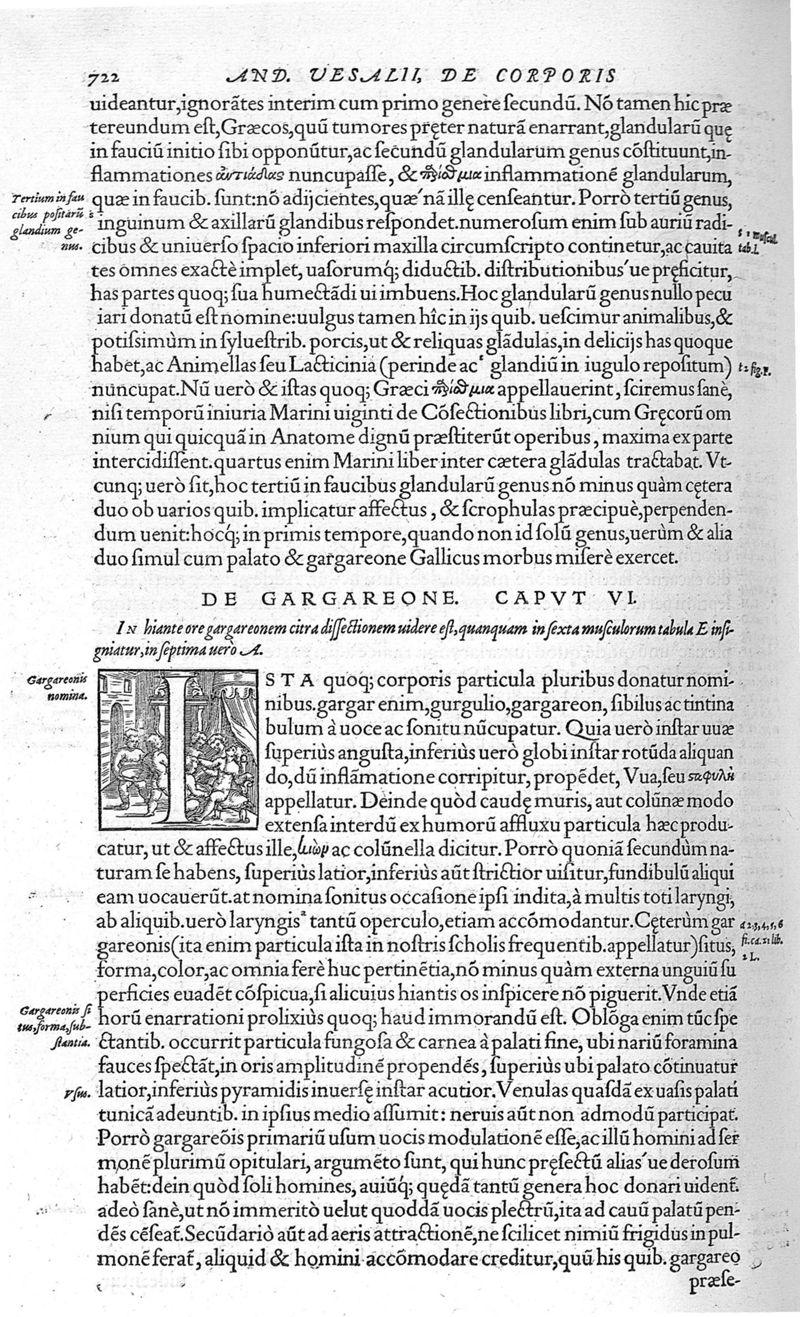 722 AND. VESALII, DE CORPORIS
uideantur,ignorãtes interim cum primo genere ſecundũ. Nõ tamen hic præ
tereundum eſt,Græcos,quũ tumores pręter naturã enarrant,glandularũ quę
in fauciũ initio ſibi opponũtur,ac ſecundũ glandularum genus cõſtituunt,in-
flammationes ἀντιάδας nuncupaſſe, & inflammationẽ glandularum,
Tertium in fau
cibus poſitarũ
glandium ge-
nus.
quæ in faucib. ſunt:nõ adijcientes,quæ'nã illę cenſeantur. Porrò tertiũ genus,
inguinum & axillarũ glandibus reſpondet.numeroſum enim ſub auriũ radi-
cibus & uniuerſo ſpacio inferiori maxilla circumſcripto continetur,ac cauita
tab.1.
tes omnes exactè implet, uaſorumq́; diductib. diſtributionibus'ue pręficitur,
has partes quoq; ſua humectãdi ui imbuens.Hoc glandularũ genus nullo pecu
iari donatũ eſt nomine:uulgus tamen hîc in ijs quib. ueſcimur animalibus,&
potiſsimùm in ſylueſtrib. porcis,ut & reliquas glãdulas,in delicijs has quoque
habet,ac Animellas ſeu Lacticinia (perinde ac glandiũ in iugulo repoſitum)
nuncupat.Nũ uerò & iſtas quoq; Græci appellauerint, ſciremus ſanè,
niſi temporũ iniuria Marini uiginti de Cõſectionibus libri,cum Gręcorũ om
nium qui quicquã in Anatome dignũ præſtiterũt operibus, maxima ex parte
intercidiſſent.quartus enim Marini liber inter cætera glãdulas tractabat. Vt-
cunq; uerò ſit,hoc tertiũ in faucibus glandularũ genus nõ minus quàm cętera
duo ob uarios quib. implicatur affectus, & ſcrophulas præcipuè,perpenden-
dum uenit:hocq́; in primis tempore,quando non id ſolũ genus,uerùm & alia
duo ſimul cum palato & gargareone Gallicus morbus miſerè exercet.
DE GARGAREONE. CAPVT VI.
IN hiante ore gargareonem citra diſſectionem uidere eſt,quanquam in ſexta muſculorum tabula E inſi-
gniatur,in ſeptima uerò A.
Gargareonis
nomina.
ISTA quoq; corporis particula pluribus donatur nomi-
nibus.gargar enim,gurgulio,gargareon, ſibilus ac tintina
bulum à uoce ac ſonitu nũcupatur. Quia uerò inſtar uuæ
ſuperiùs anguſta,inferiùs uerò globi inſtar rotũda aliquan
do,dũ inflãmatione corripitur, propẽdet, Vua,ſeu ςαφυλὴ
appellatur. Deinde quòd caudę muris, aut colũnæ modo
extenſa interdũ ex humorũ affluxu particula hæc produ-
catur, ut & affectus ille, κίων ac colũnella dicitur. Porrò quoniã ſecundùm na-
turam ſe habens, ſuperiùs latior,inferiùs aũt ſtrictior uiſitur,fundibulũ aliqui
eam uocauerũt.at nomina ſonitus occaſione ipſi indita,à multis toti laryngi,
ab aliquib.uerò laryngis ª tantũ operculo,etiam accõmodantur. Cęterùm gar
a 2.3,4,5,6
fi.ca.21 lib.
1.
gareonis(ita enim particula iſta in noſtris ſcholis frequentib.appellatur)ſitus,
forma,color,ac omnia ferè huc pertinẽtia,nõ minus quàm externa unguiũ ſu
perficies euadẽt cõſpicua,ſi alicuius hiantis os inſpicere nõ piguerit.Vnde etiã
Gargareonis ſi
tus,forma,ſub-
ſtantia.
horũ enarrationi prolixiùs quoq; haud immorandũ eſt. Oblõga enim tũc ſpe
ctantib. occurrit particula fungoſa & carnea à palati fine, ubi nariũ foramina
fauces ſpectãt,in oris amplitudinẽ propendẽs, ſuperiùs ubi palato cõtinuatur
Vſus.
latior,inferiùs pyramidis inuerſę inſtar acutior.Venulas quaſdã ex uaſis palati
tunicã adeuntib. in ipſius medio aſſumit: neruis aũt non admodũ participat.
Porrò gargareõis primariũ uſum uocis modulationẽ eſſe,ac illũ homini ad ſer
monẽ plurimũ opitulari, argumẽto ſunt, qui hunc pręſectũ alias'ue deroſum
habẽt:dein quòd ſoli homines, auiũq́; quędã tantũ genera hoc donari uident.
adeò ſanè,ut nõ immeritò uelut quoddã uocis plectrũ,ita ad cauũ palatũ pen-
dẽs cẽſeat.Secũdariò aũt ad aeris attractionẽ,ne ſcilicet nimiũ frigidus in pul-
monẽ ferat, aliquid & homini accõmodare creditur,quũ his quib. gargareo
præſe-